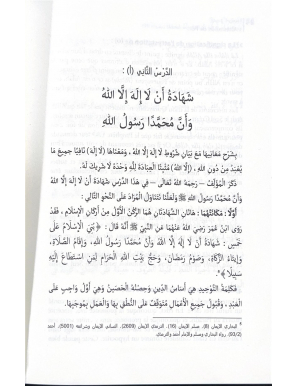 الدَّرْسُ الثَّانِي (أ) :
شَهَادَةُ أَنْ لَا إِلَهَ إِلَّا اللهُ
وَأَنَّ مُحَمَّدًا رَسُولُ اللهِ
بِشَرْحِ مَعَانِيهَا مَعَ بَيَانِ شُرُوطِ لَا إِلَهَ إِلَّا اللهُ ، وَمَعْنَاهَا (لَا إِلَهَ) نَافِيًا جَمِيعَ مَا
يُعْبَدُ مِنْ دُونِ اللهِ، (إِلَّا اللهُ) مُثْبِتًا الْعِبَادَةَ لِلَّهِ وَحْدَهُ لَا شَرِيكَ لَهُ.
ذَكَرَ الْمُؤَلِّفُ – رَحِمَهُ اللهُ تَعَالَى – فِي هَذَا الدَّرْسِ شَهَادَةَ أَنْ لَا إِلَهَ إِلَّا اللهُ
وَأَنَّ مُحَمَّدًا رَسُولُ اللهِ وَلَعَلَّنَا نَتَنَاوَلُ الْمُرَادَ عَلَى النَّحْوِ التَّالِي :
أَوَّلًا : مَكَانَتُهُمَا: هَاتَانِ الشَّهَادَتَانِ هُمَا الرُّكْنُ الْأَوَّلُ مِنْ أَرْكَانِ الْإِسْلَامِ، فَقَدْ
رَوَى ابْنُ عُمَرَ رَضِيَ اللهُ عَنْهُمَا عَنِ النَّبِيِّ ﷺ أَنَّهُ قَالَ : (بُنِيَ الْإِسْلَامُ عَلَى
خَمْسٍ : شَهَادَةِ أَنْ لَا إِلَهَ إِلَّا اللهُ وَأَنَّ مُحَمَّدًا رَسُولُ اللهِ، وَإِقَامِ الصَّلَاةِ،
وَإِيتَاءِ الزَّكَاةِ، وَصَوْمِ رَمَضَانَ، وَحَجِّ بَيْتِ اللهِ الْحَرَامِ لِمَنِ اسْتَطَاعَ إِلَيْهِ
سَبِيلًا)⁴.
فَكَلِمَةُ التَّوْحِيدِ هِيَ أَسَاسُ الدِّينِ وَحِصْنُهُ الْحَصِينُ وَهِيَ أَوَّلُ وَاجِبٍ عَلَى
الْعَبْدِ ، وَقَبُولُ جَمِيعِ الْأَعْمَالِ مُتَوَقِّفٌ عَلَى النُّطْقِ بِهَا وَالْعَمَلِ بِمُوجِبِهَا.
⁴ البخاري الإيمان (8)، مسلم الإيمان (16)، الترمذي الإيمان (2609)، النسائي الإيمان وشرائعه (5001)، أحمد
(93/2)، رواه البخاري ومسلم والإمام أحمد والترمذي